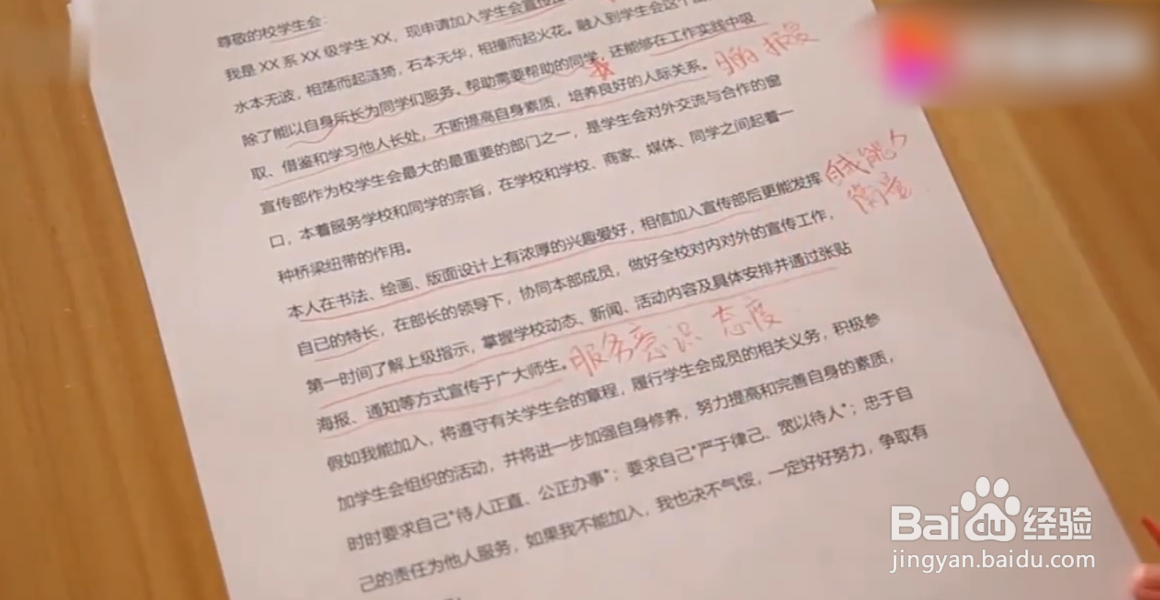 尊敬的校学生会：
我是XX系XX级学生XX，现申请加入学生会宣传
水本无波，相荡而起涟漪，石本无华，相撞而起火花。融入到学生会这个
除了能以自身所长为同学们服务、帮助需要帮助的同学，还能够在工作实践中吸
取、借鉴和学习他人长处，不断提高自身素质，培养良好的人际关系。
宣传部作为校学生会最大的最重要的部门之一，是学生会对外交流与合作的窗
口，本着服务学校和同学的宗旨，在学校和学校、商家、媒体、同学之间起着一
种桥梁纽带的作用。
本人在书法、绘画、版面设计上有浓厚的兴趣爱好，相信加入宣传部后更能发挥
自己的特长，在部长的领导下，协同本部成员，做好全校对内对外的宣传工作，
第一时间了解上级指示，掌握学校动态、新闻、活动内容及具体安排并通过张贴
海报、通知等方式宣传于广大师生。
服务意识 态度
假如我能加入，将遵守有关学生会的章程，履行学生会成员的相关义务，积极参
加学生会组织的活动，并将进一步加强自身修养，努力提高和完善自身的素质，
时时要求自己"待人正直、公正办事"；要求自己"严于律己、宽以待人"；忠于自
己的责任为他人服务，如果我不能加入，我也决不气馁，一定好好努力，争取有
Baidu经验
jingyan.baidu.com